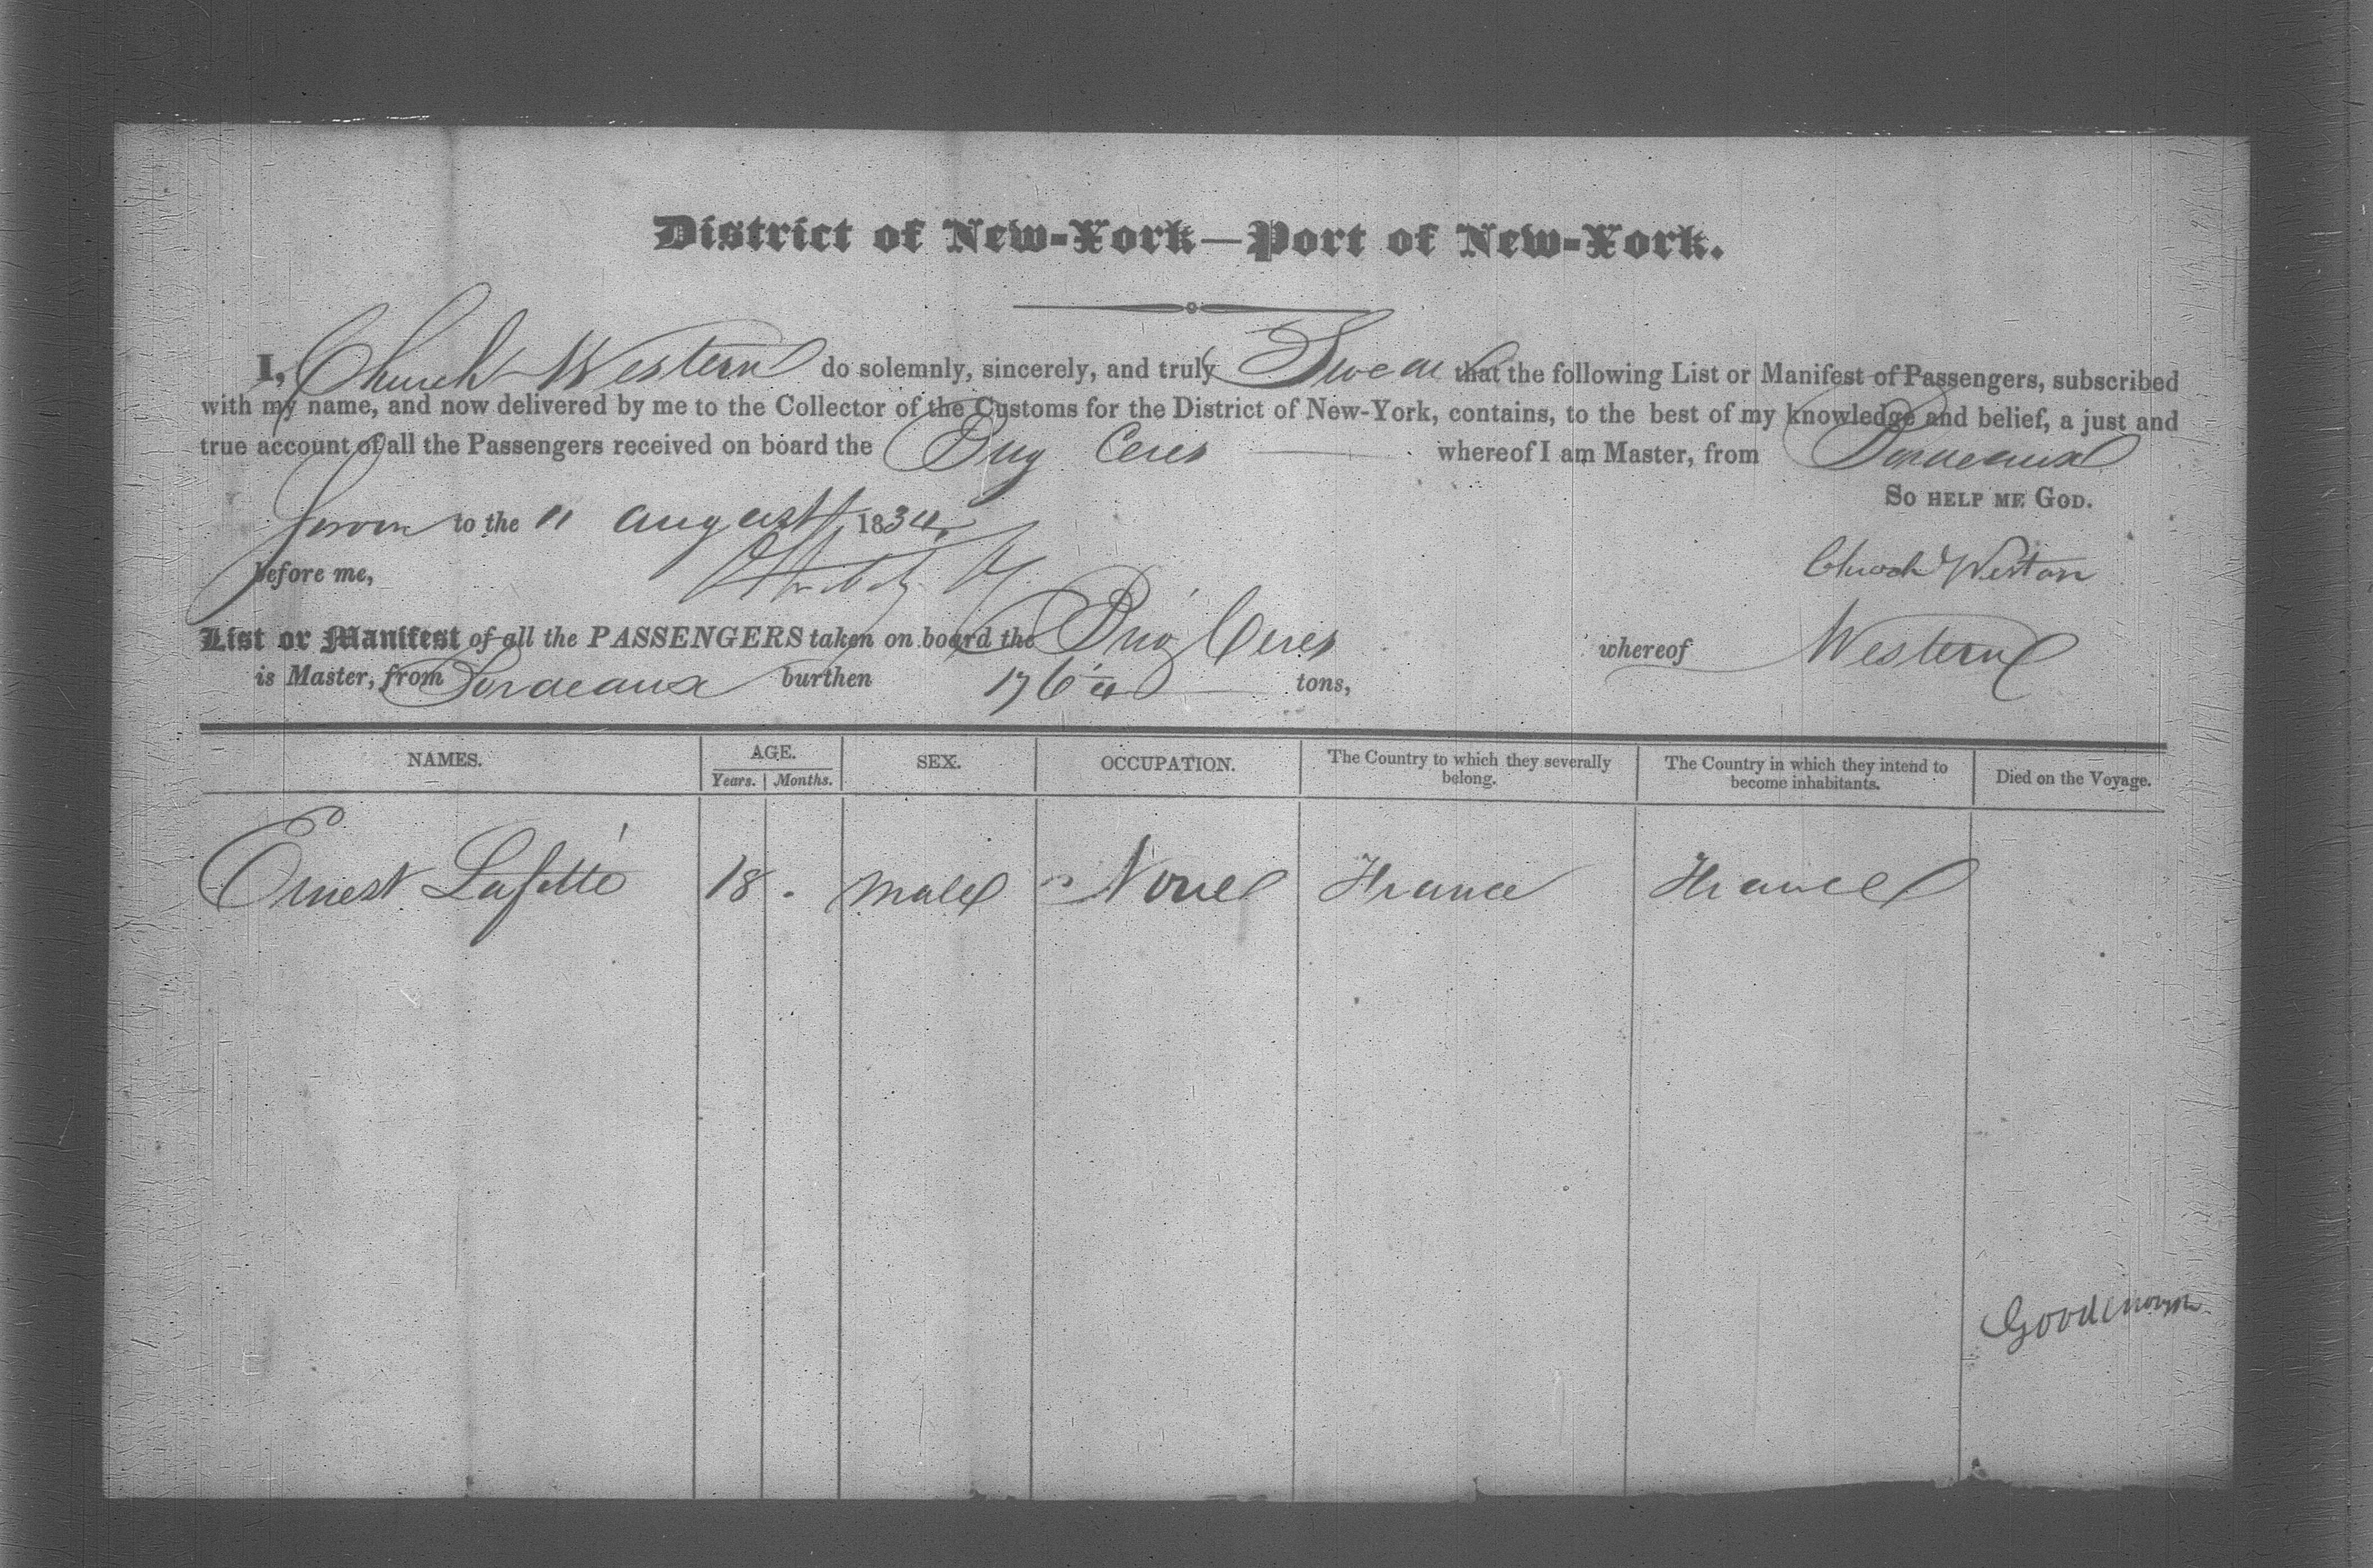 District of New-York—Port of New-York.
I, Church Western do solemnly, sincerely, and truly Swear that the following List or Manifest of Passengers, subscribed
with my name, and now delivered by me to the Collector of the Customs for the District of New-York, contains, to the best of my knowledge and belief, a just and
true account of all the Passengers received on board the Brig Ceres whereof I am Master, from Bordeaux
So help me God.
Sworn to the 11 august 1834
before me,
Church Weston
List or Manifest of all the PASSENGERS taken on board the Brig Ceres whereof Western
is Master, from Bordeaux burthen 176 tons,
NAMES. AGE. SEX. OCCUPATION. The Country to which they severally belong. The Country in which they intend to become inhabitants. Died on the Voyage.
Years. Months.
Ernest Lafitte 18 - Male None France France
Goodenough